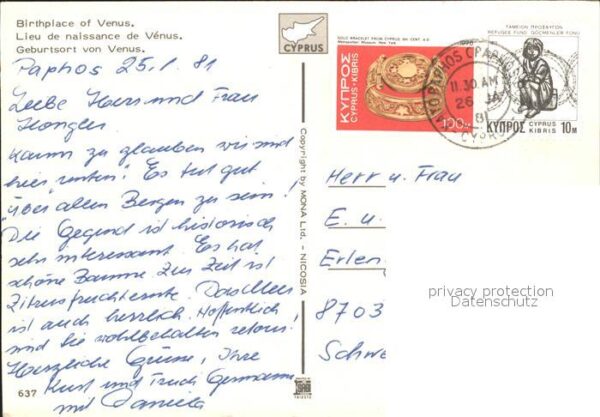 Birthplace of Venus.
Lieu de naissance de Vénus.
Geburtsort von Venus.
CYPRUS
Paphos 25.1.81
Liebe Herr und Frau
kaum zu glauben wir sind
hier "unten"! Es tut gut
"über allen Bergen zu sein"!
Die Gegend ist historisch
sehr interessant. Es hat
schöne Bäume zur Zeit ist
Zitrusfruchternte. Das Meer
ist auch herrlich. Hoffentlich
sind Sie wohlbehalten retour.
Herzliche Grüsse, Ihre
Kurt und Trudi Germann
mit Daniela
637
Copyright by MONA Ltd. - NICOSIA
GOLD BRACELET FROM CYPRUS 6th CENT. B.C.
Metropolitan Museum, New York
1976
ΚΥΠΡΟΣ
CYPRUS·KIBRIS
100M
ΤΑΜΕΙΟΝ ΠΡΟΣΦΥΓΩΝ
REFUGEE FUND GÖÇMENLER FONU
ΚΥΠΡΟΣ CYPRUS
KIBRIS 10M
PAPHOS
11.30 AM
26 JA
81
CYPRUS
Herr u. Frau
E. u.
Erlen
8703
Schwe
privacy protection
Datenschutz